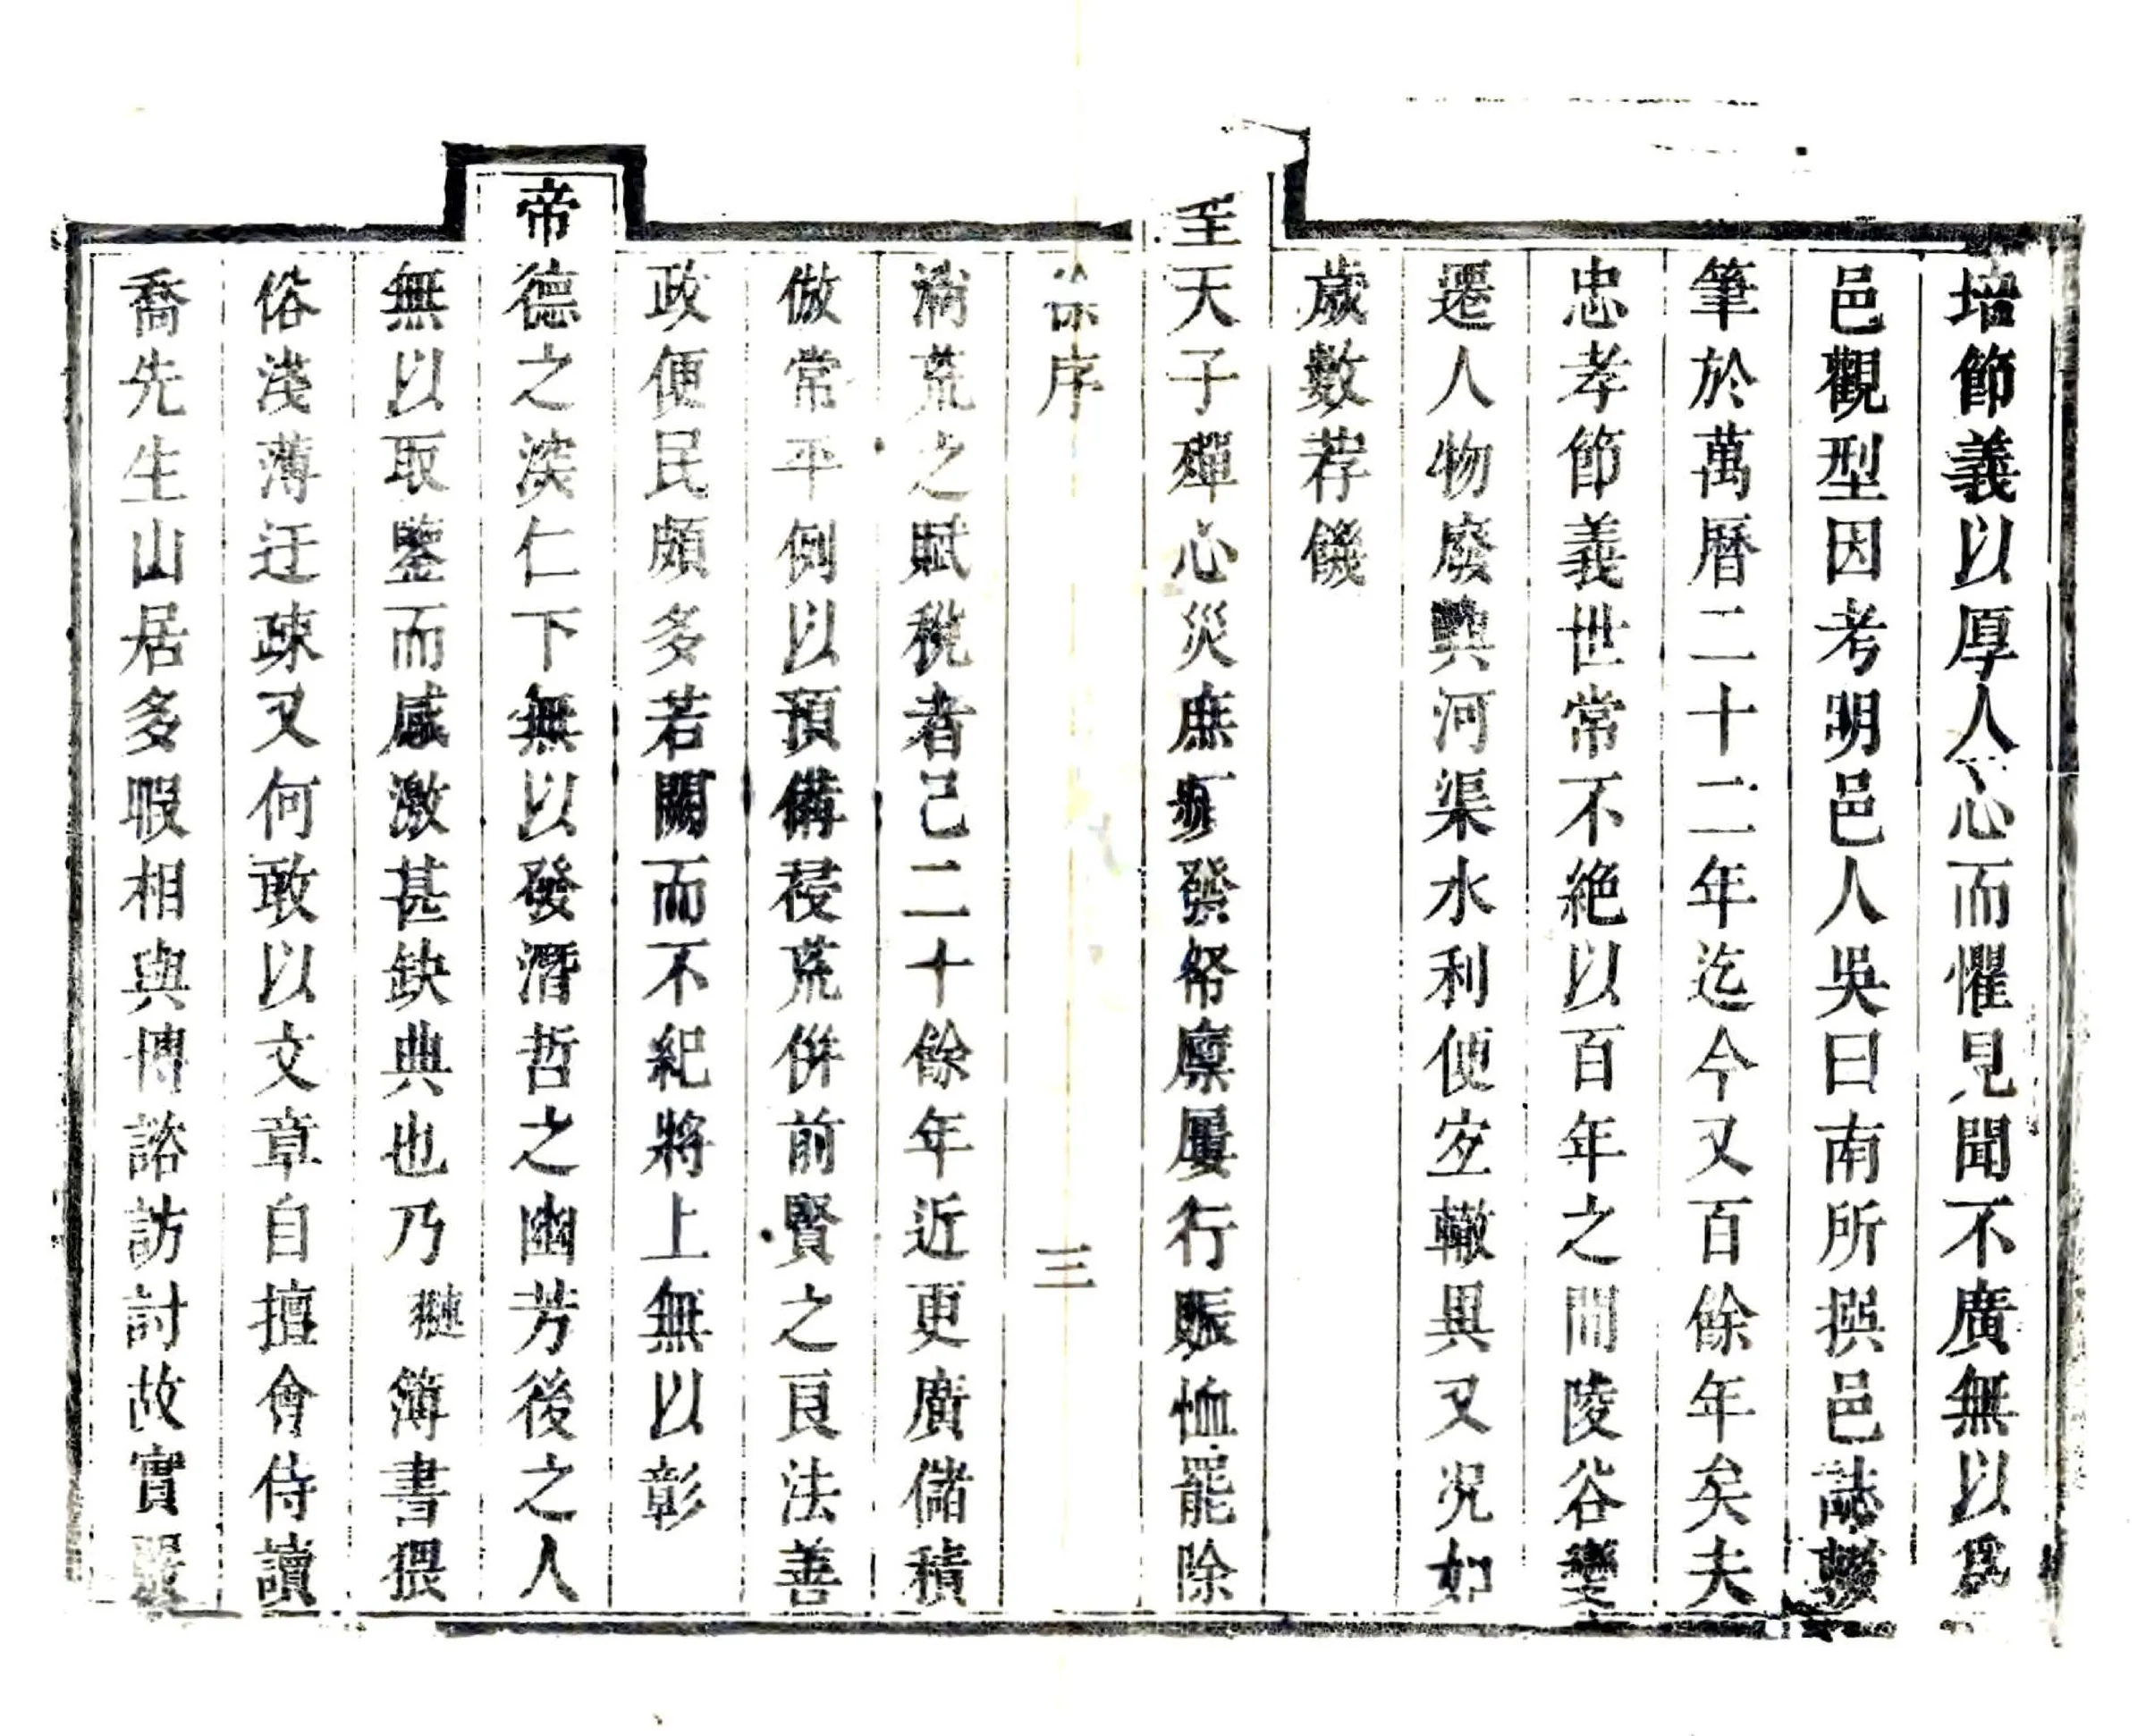 培節義以厚人心而懼見聞不廣無以爲
邑觀型因考明邑人吳曰南所撰邑誌輟
筆於萬曆二十二年迄今又百餘年矣夫
忠孝節義世常不絶以百年之間陵谷變
遷人物廢興河渠水利便空轍異又况如
歲數荐饑
至天子殫心災庶 發帑廩屢行賑恤罷除
徐序 三
荒之賦稅者已二十餘年近更廣儲積
倣常平例以預備祲荒倂前賢之良法善
政便民頗多若闕而不紀將上無以彰
帝德之深仁下無以發潛哲之幽芳後之人
無以取鑒而感激甚缺典也乃 簿書猥
俗淺薄迂疎又何敢以文章自擅會侍讀
喬先生山居多暇相與博諮訪討故實嚴